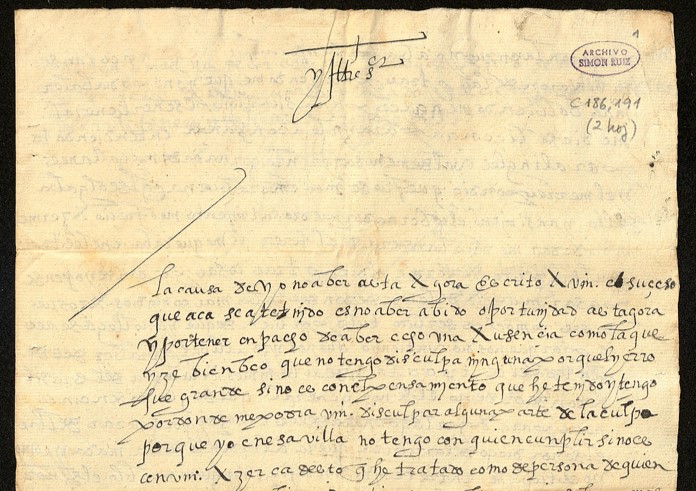 yllre sor
ARCHIVO
SIMON RUIZ
C 186, 191
(2 hoj)
la causa de yo no aber asta Agora escrito A vm. el suçeso
que aca se a tenido es no aber abido oportunidad asta gora
y por tener en paçho de aber echo una Ausençia como la que
yze bien beo que no tengo disculpa ninguna porque el yerro
fue grande sino es con el pensamiento que he tenido y tengo
por donde me podra vm. disculpar alguna parte de la culpa
porque yo en esa villa no tengo con quien cunplir sino es
con vm. Azerca desto q he tratado como de persona de quien